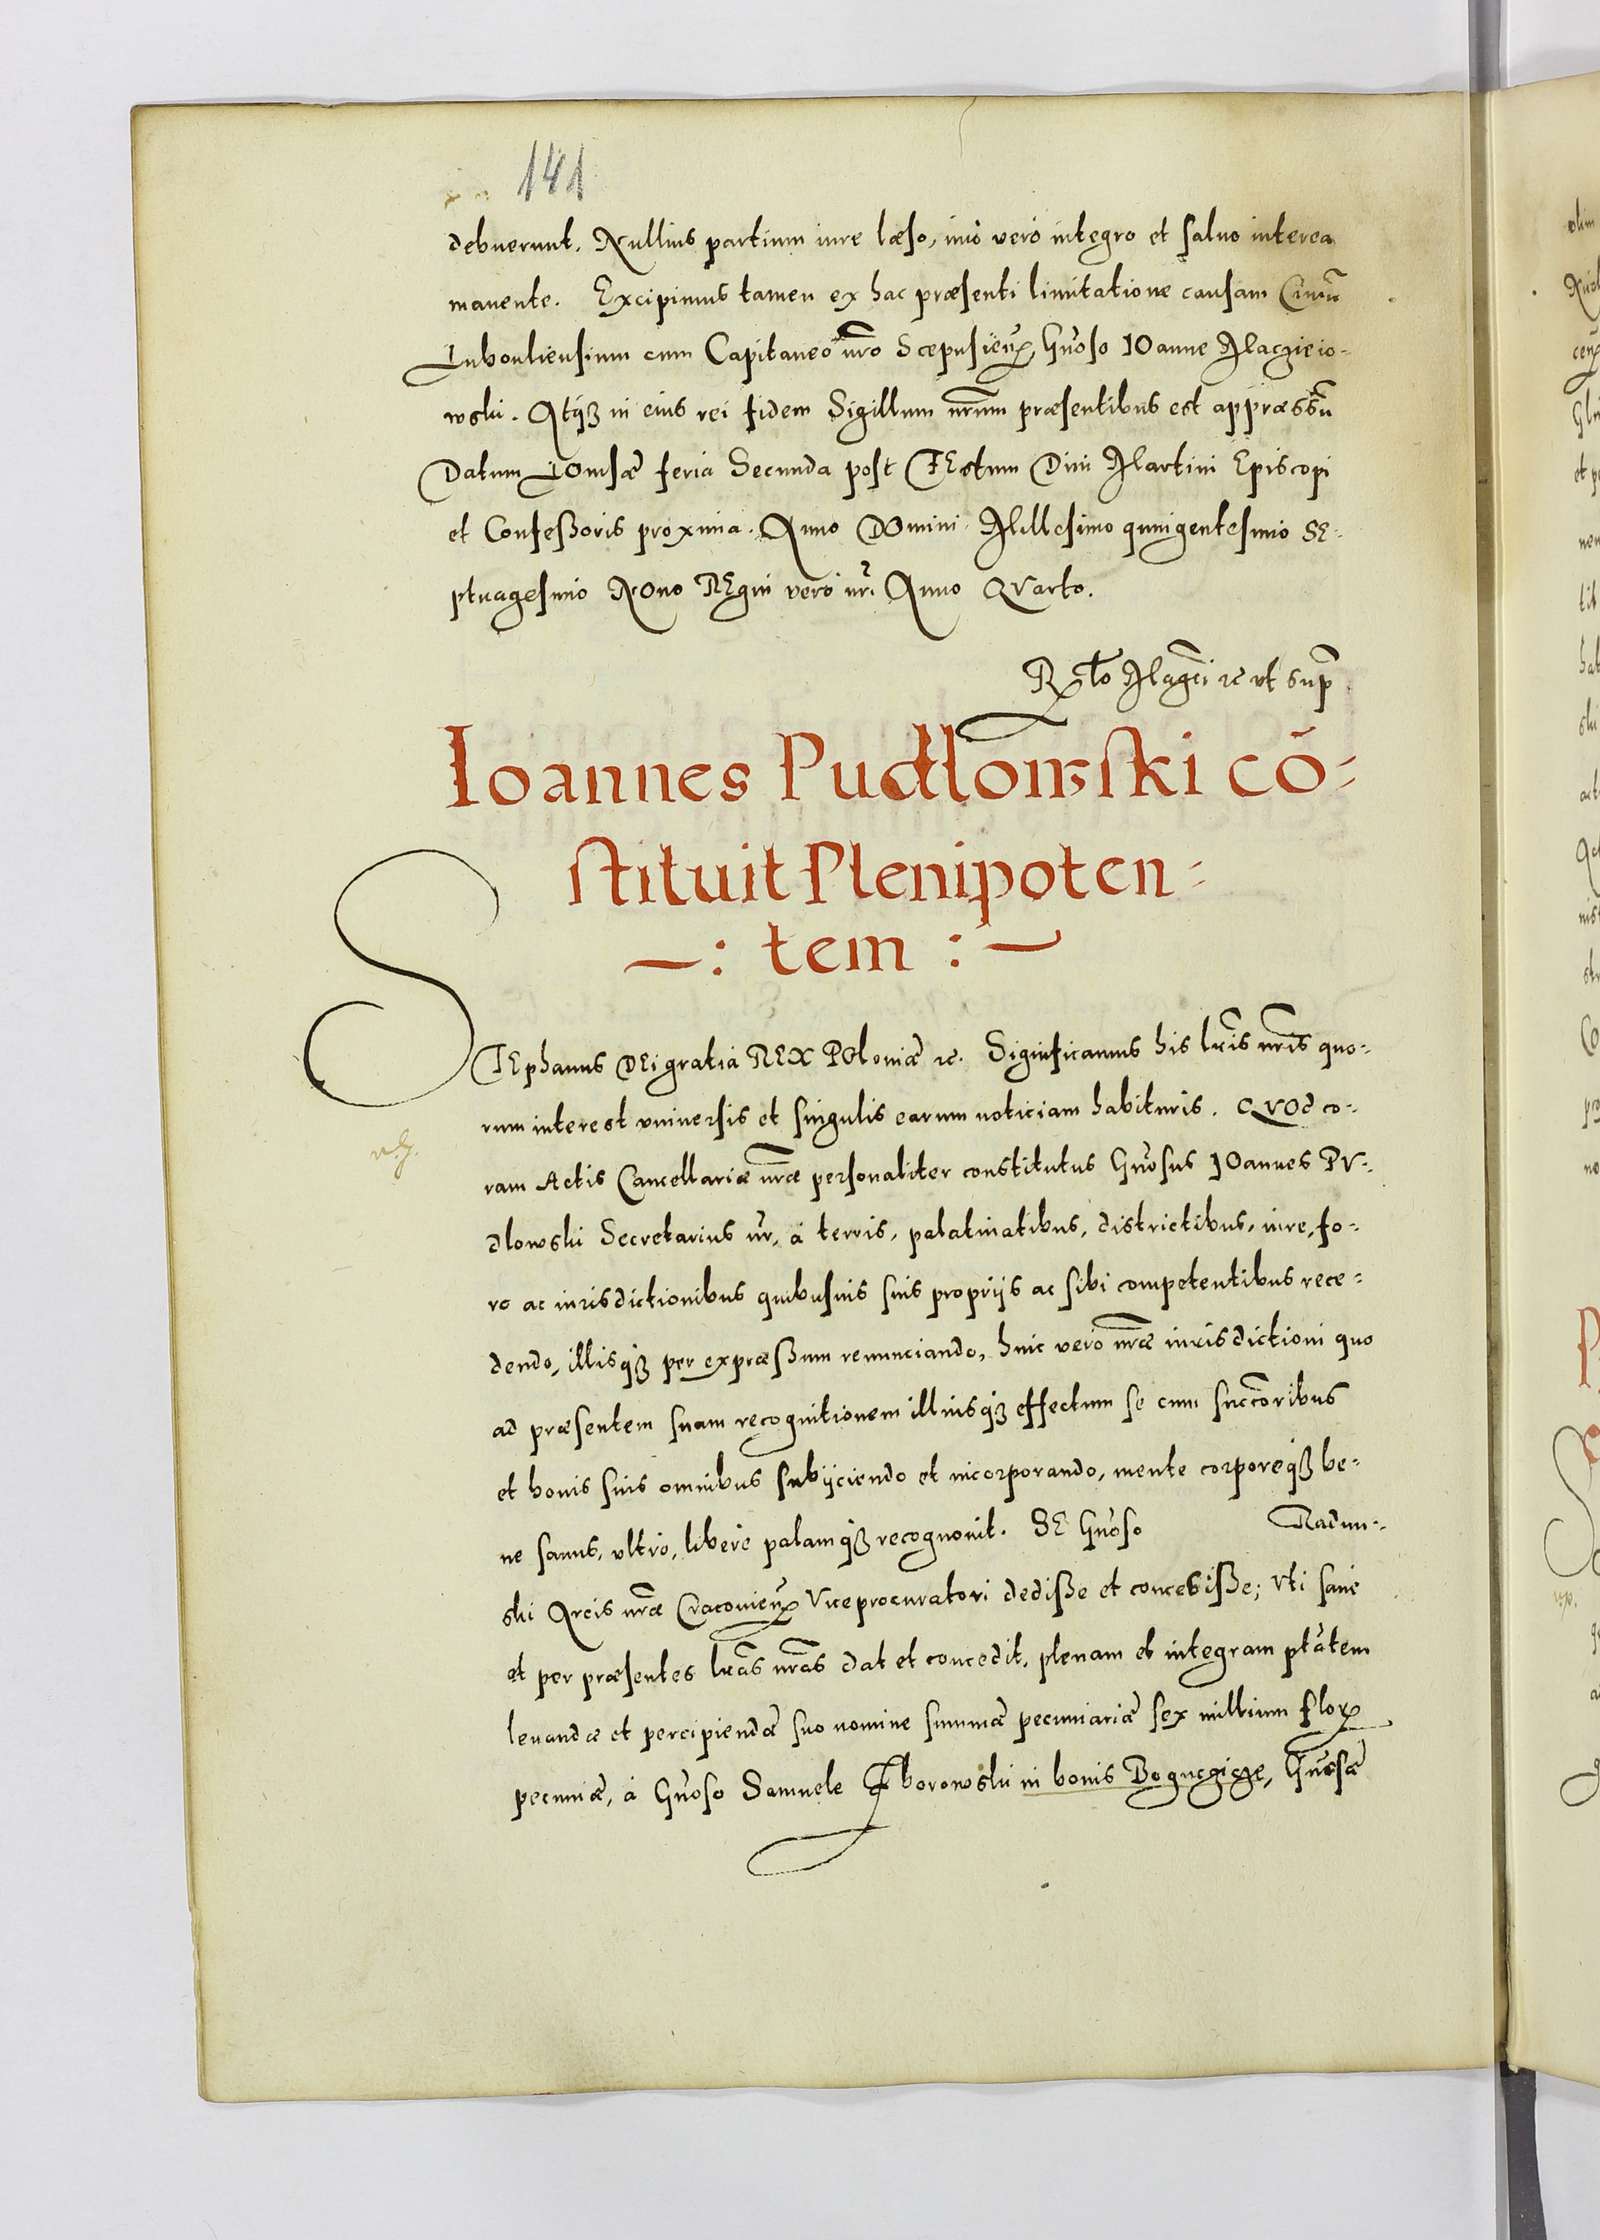 141
debuerunt. Nullius partium iure læso, imò verò integro et saluo interea
manente. Excipimus tamen ex hac præsenti limitatione causam Ciuiũ
Lubouliensium cum Capitaneo nr̃o Scepusien̄ Gñoso IOanne Maczieio-
wski. Atq3 in eius rei fidem Sigillum nr̃um præsentibus est appræssũ
Datum LOmsæ feria Secunda post FEstum Diui Martini Episcopi
et Confeßoris proxima. Anno DOmini Millesimo quingentesimo SE-
ptuagesimo NOno REgni verò nr̃i Anno QVarto.
Rl̃o Magci ꝛc vt sup
Ioannes Pudłowski cõ-
stituit Plenipoten-
-: tem :-
STEphanus DEi gratia REX POloniæ ꝛc. Significamus his lr̃is nr̃is quo-
rum interest vniuersis et singulis earum noticiam habituris. QVOd co-
ram Actis Cancellariæ nr̃æ personaliter constitutus Gñosus IOannes PV-
dlowski Secretarius nr̃, à terris, palatinatibus, districtibus, iure, fo-
ro ac iurisdictionibus quibusuis suis proprijs ac sibi competentibus rece-
dendo, illisq3 per expræßum renunciando, huic verò nr̃æ iurisdictioni quo
ad præsentem suam recognitionem illiusq3 effectum se cum succ̃oribus
et bonis suis omnibus subijciendo et incorporando, mente corporeq3 be-
ne sanus, vltrò, liberè palamq3 recognouit. SE Gñoso Radun-
ski Arcis nr̃æ Cracouien̄ Viceprocuratori dediße et conceßiße; vti sanè
et per præsentes lr̃as nr̃as dat et concedit, plenam et integram ptãtem
leuandæ et percipiendæ suo nomine summæ pecuniariæ sex millium flor
pecuniæ, à Gñoso Samuele Zborowski in bonis Bogucgicze, Gñosæ